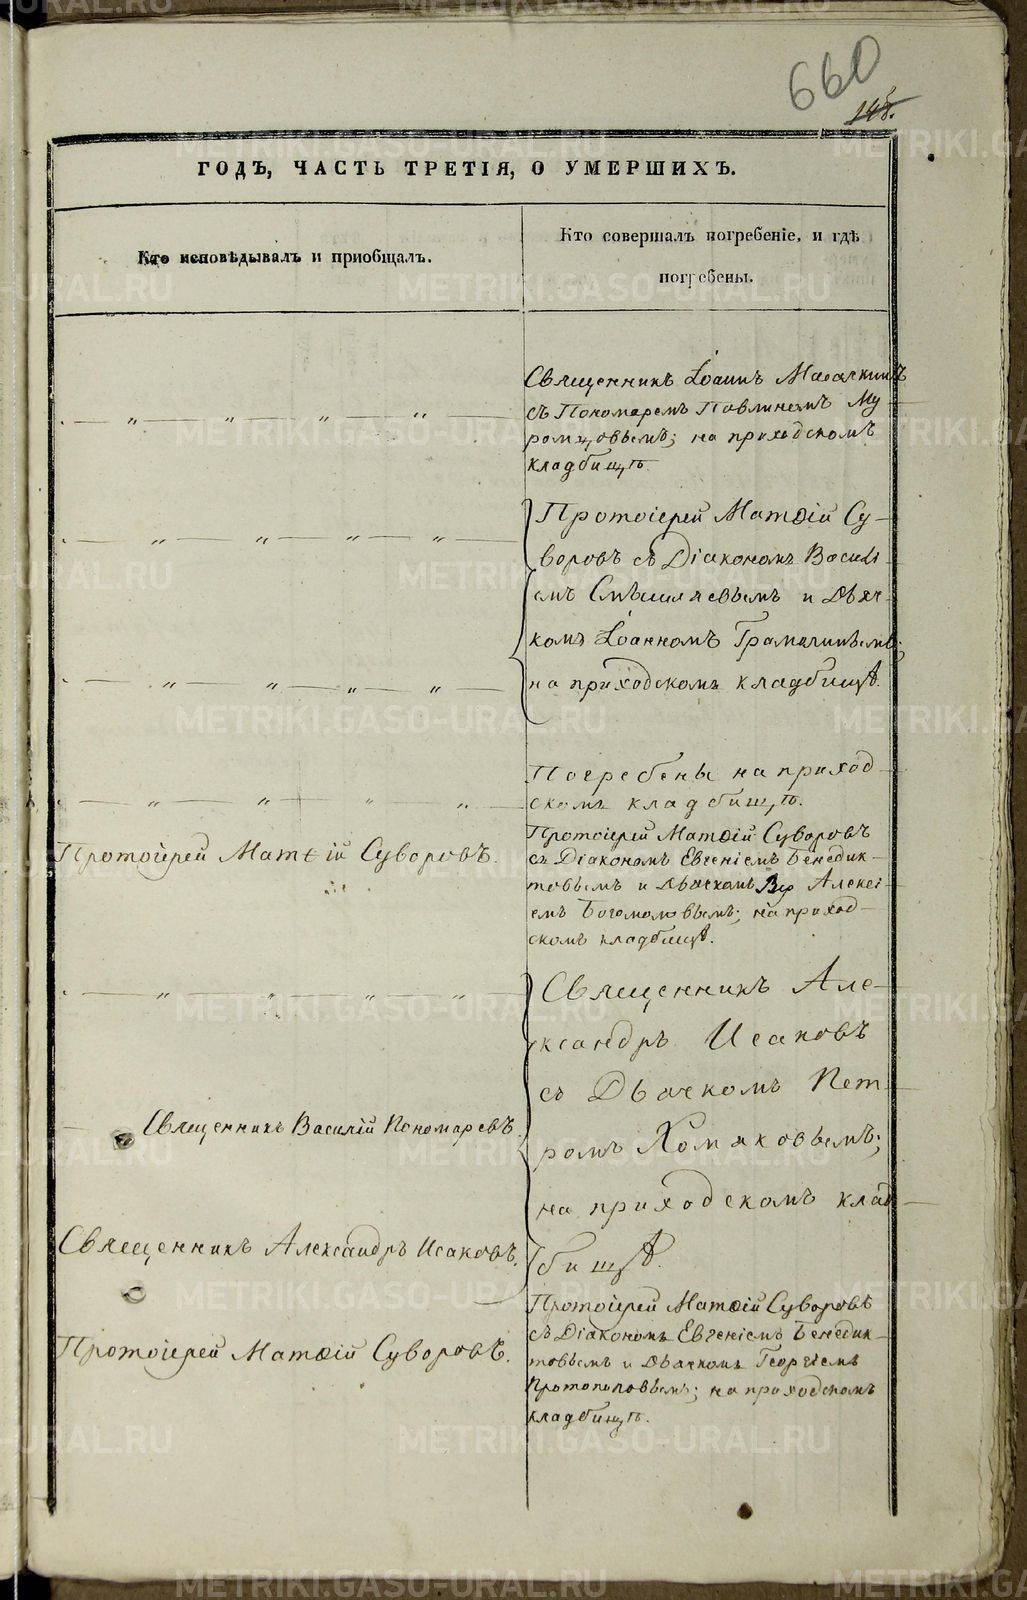 660
ГОДЪ, ЧАСТЬ ТРЕТІЯ, О УМЕРШИХЪ.
Кто исповѣдывалъ и пріобщалъ.
Кто совершалъ погребеніе, и гдѣ
погребены.
Священникъ Іоаннъ
съ Пономаремъ Павлиномъ Му
ромцовымъ; на приходскомъ
кладбищѣ.
— „ — „ — „ — „ —
Протоіерей Матѳій Су-
воровъ съ Діакономъ Василі-
емъ Смѣшляевымъ и Дьяч-
комъ Іоанномъ
на приходскомъ кладбищѣ.
— „ — „ — „ — „ —
— „ — „ — „ — „ —
Погребены на приход-
скомъ кладбищѣ.
— „ — „ — „ — „ —
Протоіерей Матѳій Суворовъ.
Протоіерей Матѳій Суворовъ
съ Діакономъ Евгеніемъ Бенедик-
товымъ и Дьячкомъ Алексі-
емъ Богомоловымъ; на приход-
скомъ кладбищѣ.
— „ — „ — „ — „ —
Священникъ Василій Пономаревъ.
Священникъ Александръ Исаковъ.
Священникъ Але-
ксандръ Исаковъ
съ Дьячкомъ Пет
ромъ Хомяковымъ;
на приходскомъ клад-
бищѣ.
Протоіерей Матѳій Суворовъ.
Протоіерей Матѳій Суворовъ
съ Діакономъ Евгеніемъ Бенедик-
товымъ и Дьячкомъ Георгіемъ
Протопоповымъ; на приходскомъ
кладбищѣ.
METRIKI.GASO-URAL.RU